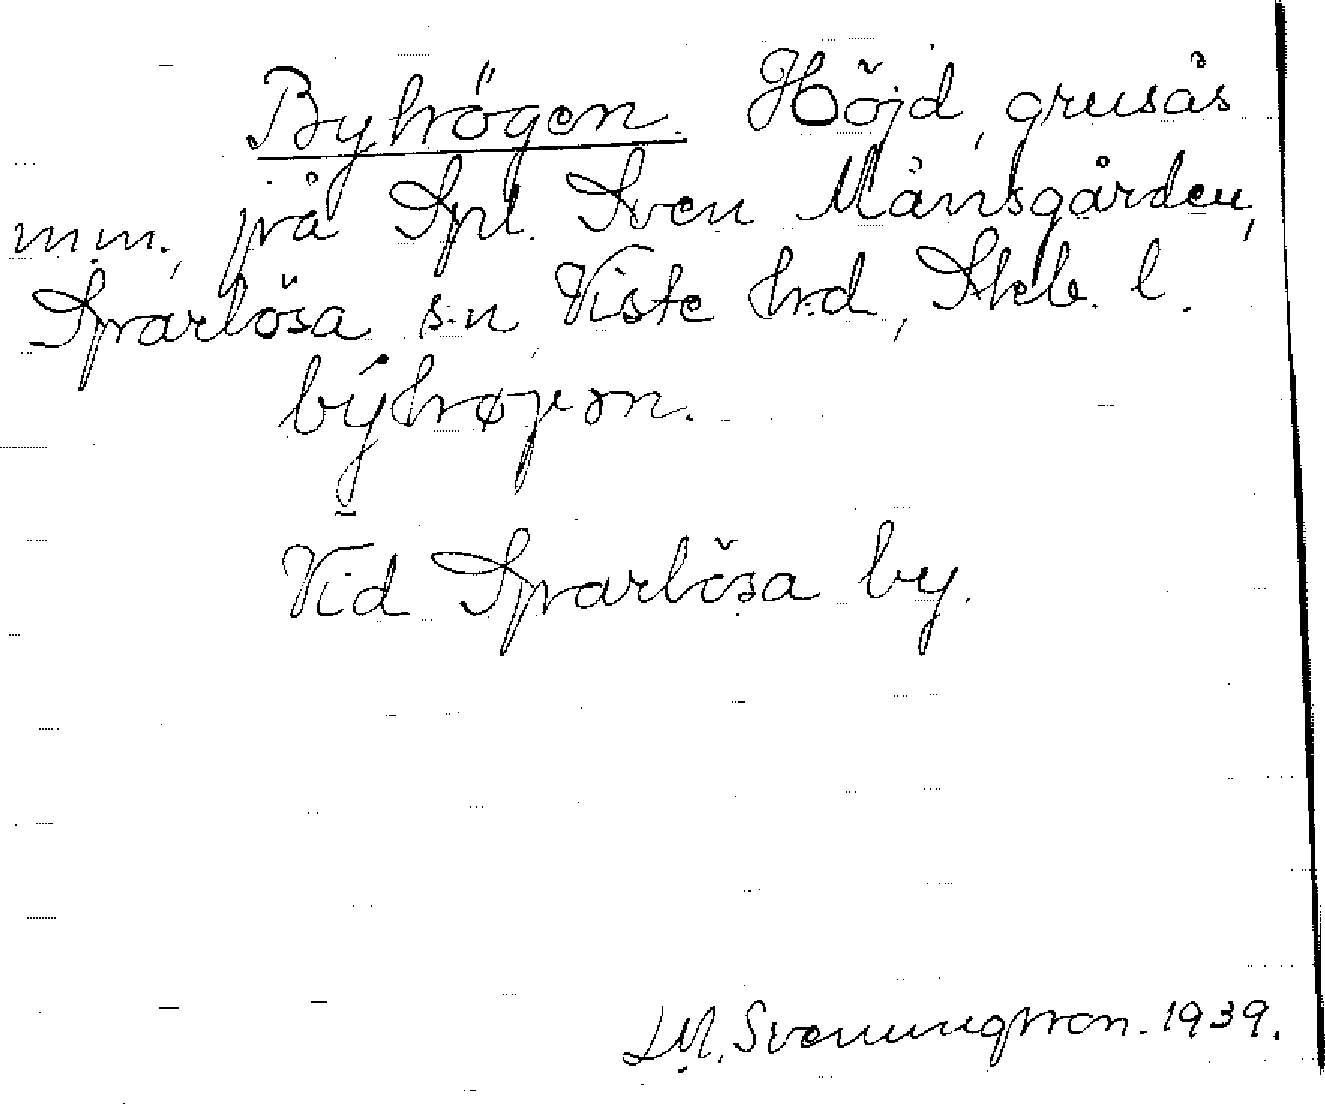 Byhögen. Höjd, grusås
m.m., på Spl. Sven Månsgården,
Sparlösa s:n Viste hd, Skb. l.
býhøgən.
Vid Sparlösa by.
Svenungsson. 1939.